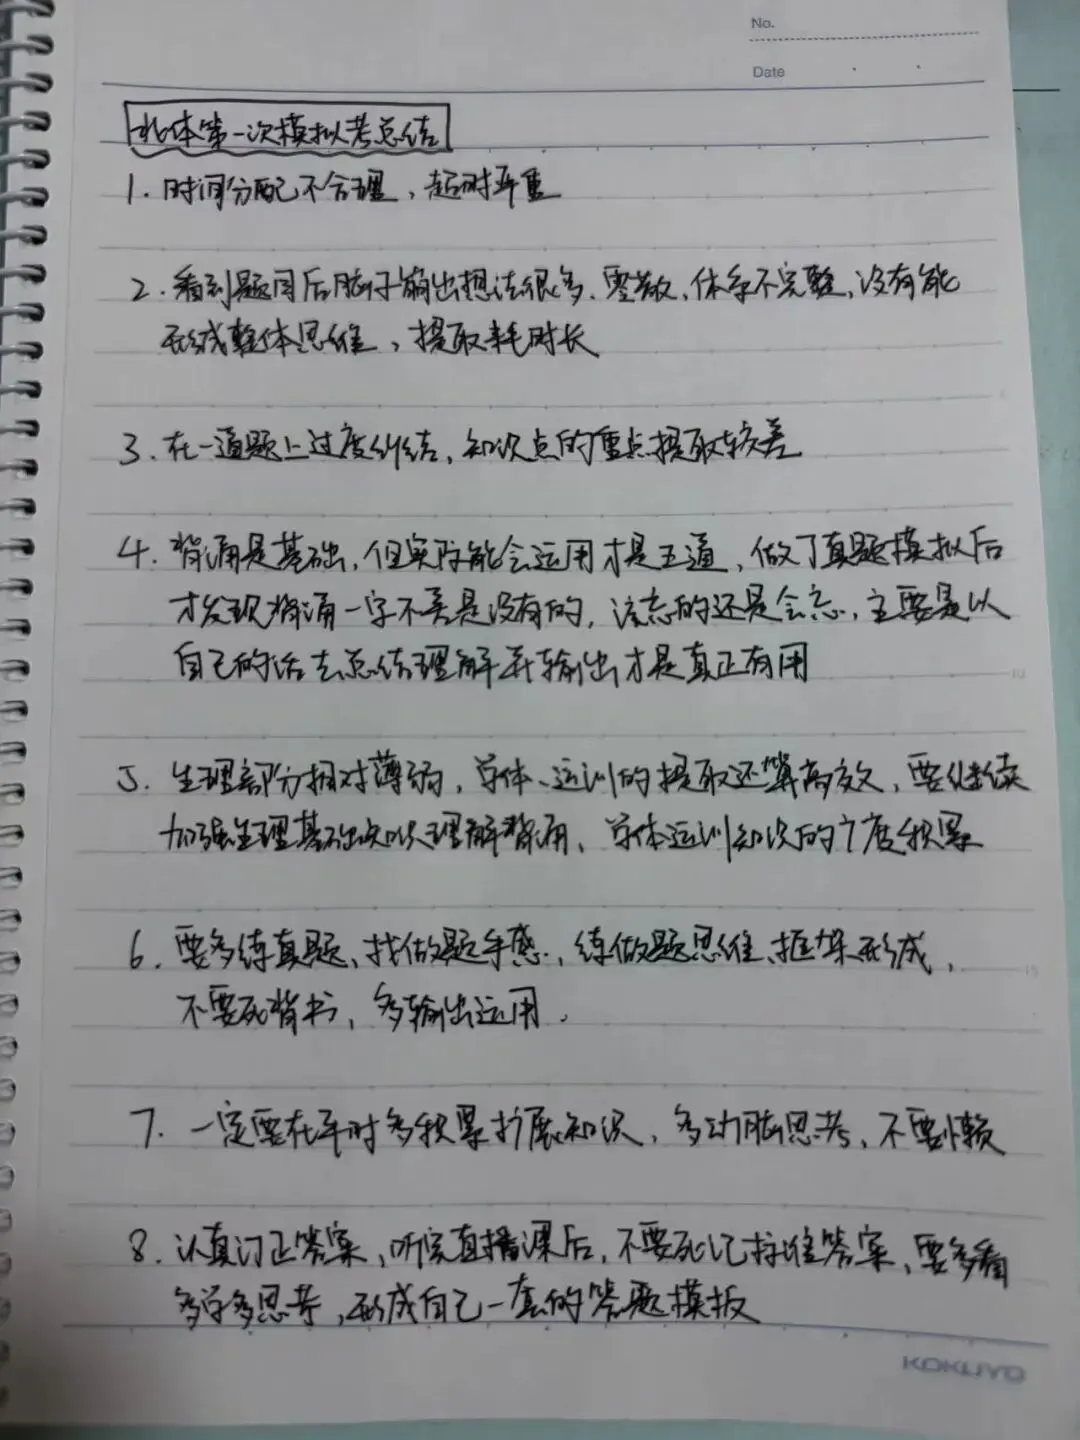 No.
Date
北体第一次模拟考总结
1. 时间分配不合理，超时严重
2. 看到题目后脑子蹦出想法很多、零散、体系不完整、没有能
形成整体思维，提取耗时长
3. 在一道题上过度纠结，知识点的重点提取较差
4. 背诵是基础，但实际能会运用才是王道，做了真题模拟后
才发现背诵一字不差是没有的，该忘的还是会忘，主要是以
自己的话去总结理解并输出才是真正有用
5. 生理部分相对薄弱，学体、运训的提取还算高效，要继续
加强生理基础知识理解背诵、学体运训知识的广度积累
6. 要多练真题、找做题手感，练做题思维、框架形成，
不要死背书，多输出运用.
7. 一定要在平时多积累扩展知识，多动脑思考，不要懒
8. 认真订正答案，听完直播课后，不要死记标准答案、要多看
多学多思考，形成自己一套的答题模板
KOKUYO